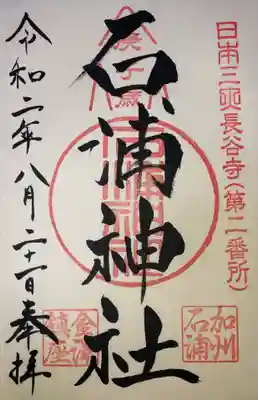 日本三大長谷寺(第二番所)
加州
石浦
庚子歳
石浦神社
令和二年八月二十一日奉拝
鎮座